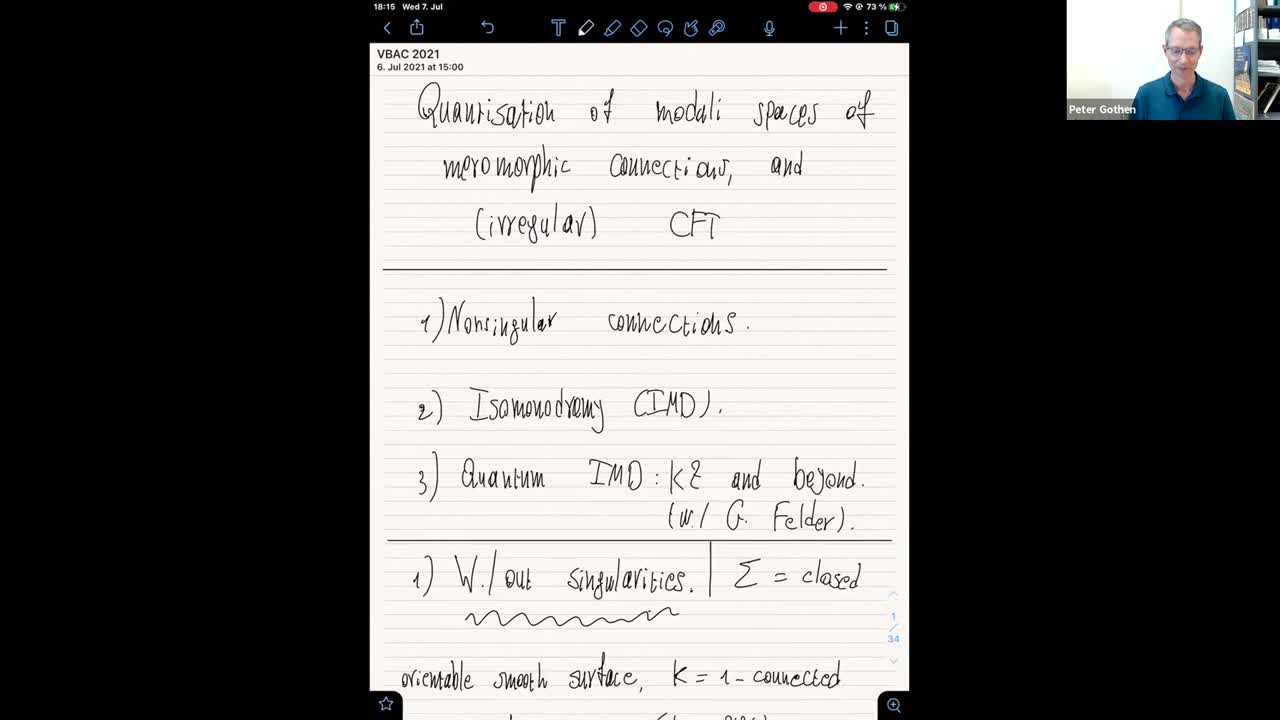 18:15 Wed 7. Jul
73 %
VBAC 2021
6. Jul 2021 at 15:00
Quantisation of moduli spaces of
meromorphic connections, and
(irregular) CFT
1) Nonsingular connections.
2) Isomonodromy (IMD).
3) Quantum IMD: KZ and beyond.
(w./ G. Felder).
1) W./out singularities. | Σ = closed
orientable smooth surface, K = 1-connected
1
/
34
Peter Gothen